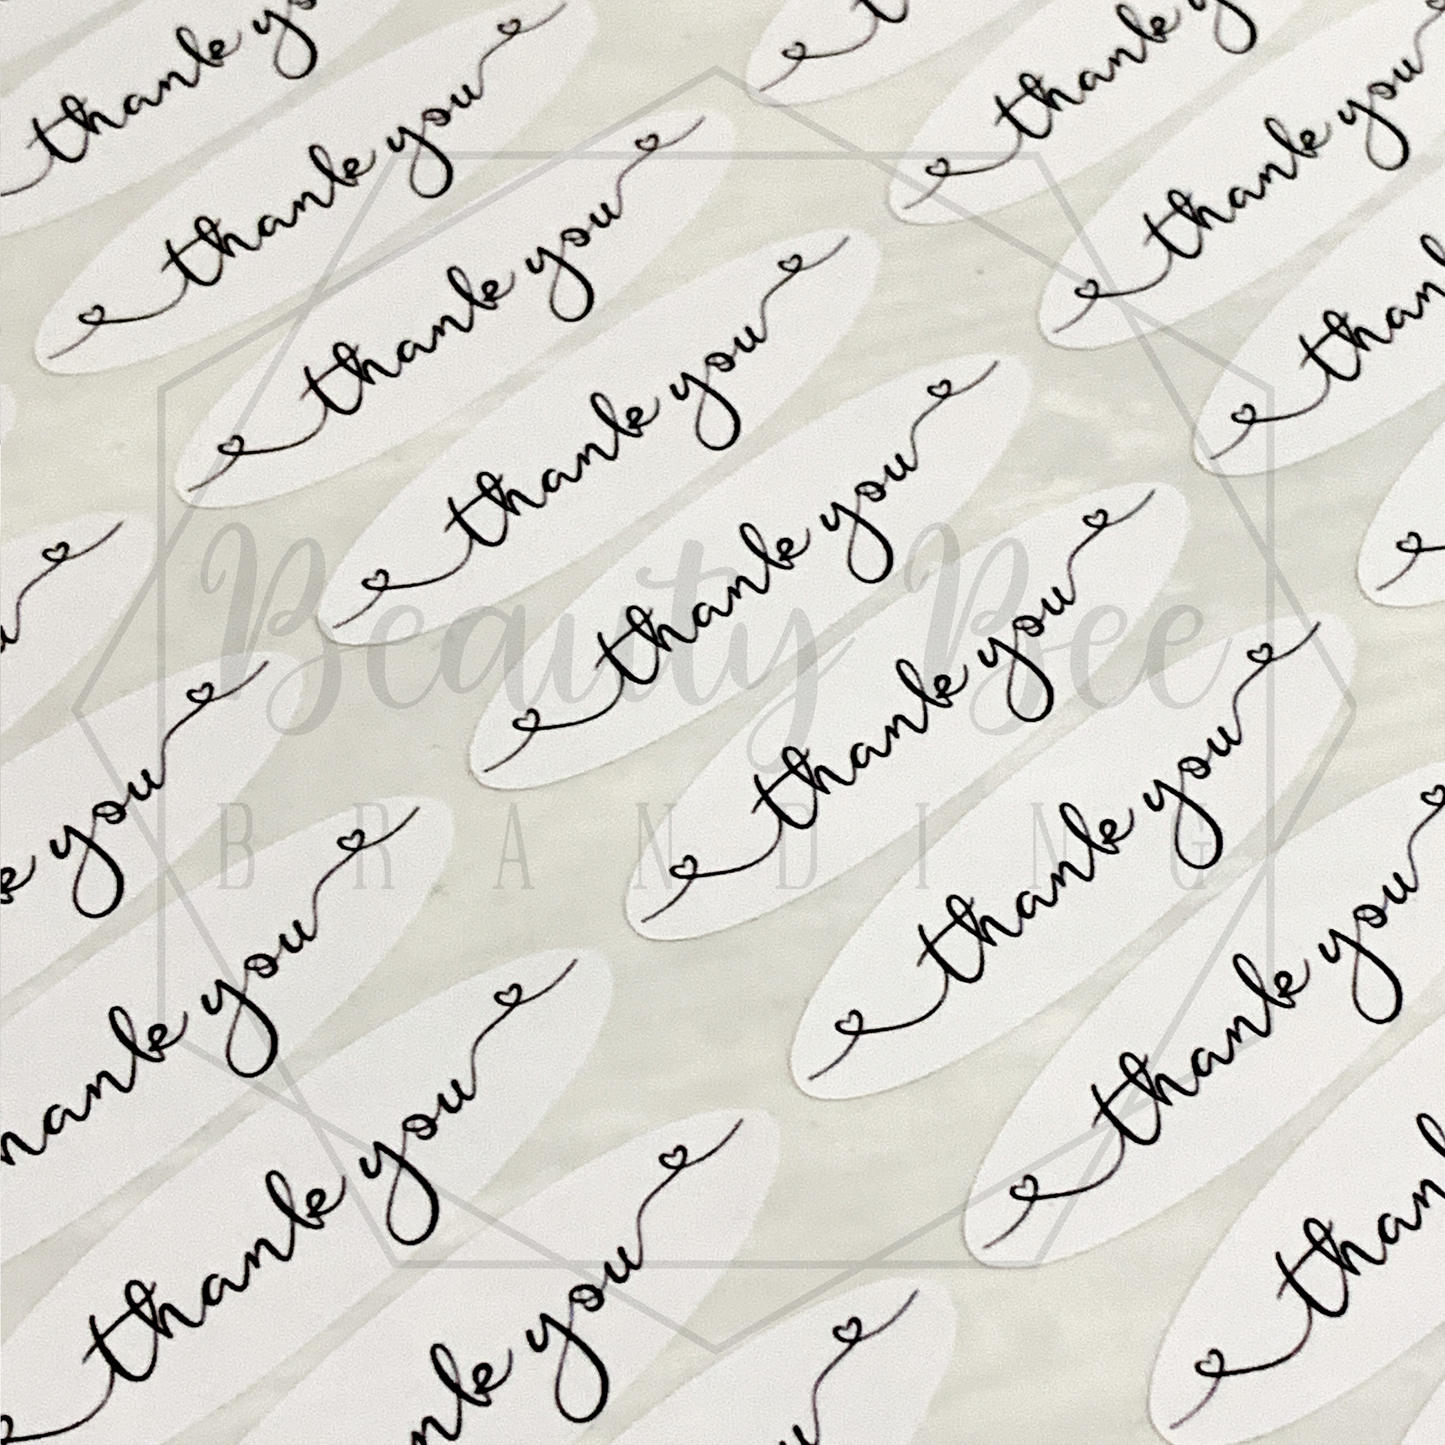 thank you
thank you
thank you
thank you
thank you
thank you
thank you
thank you
thank
thank you
thank you
thank
thank
you
thank you
you
Beauty Bee
BRANDING